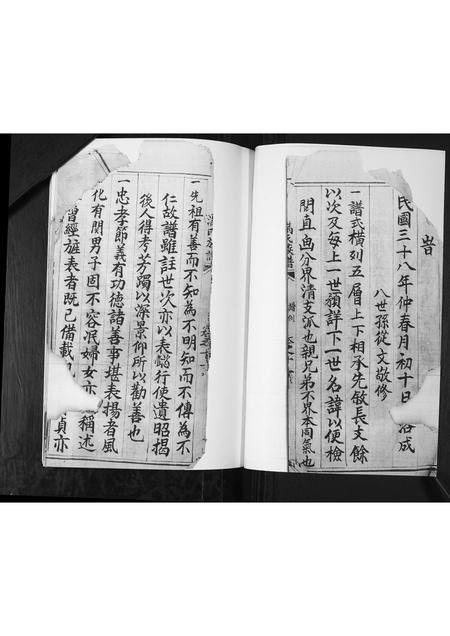 旹
民國三十八年仲春月初十日 洛成
八世孫從文敬修
一譜式横列五層上下相承先敘長支餘
以次及每上一世預詳下一世名諱以便檢
閱直画分界清支派也親兄弟不界本同氣也
一先祖有善而不知為不明知而不傳為不
仁故譜雖註世次亦以表懿行使遺昭揭
後人得考芳躅以深景仰所以勸善也
一忠孝節義有功德諸善事堪表揚者風
化有関男子固不容泯婦女亦 稱述
曾經旌表者既已備載 貞亦